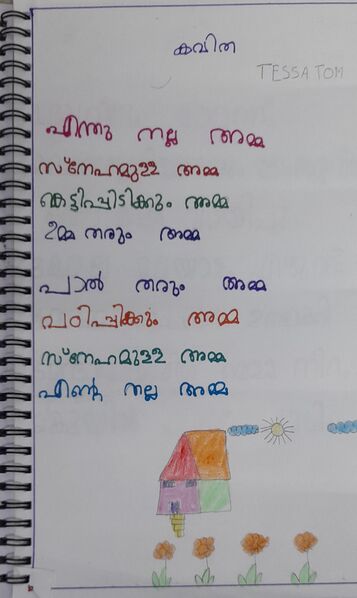 കവിത
TESSA TOM
എന്തു നല്ല അമ്മ
സ്നേഹമുള്ള അമ്മ
കെട്ടിപ്പിടിക്കും അമ്മ
ഉമ്മ തരും അമ്മ
പാൽ തരും അമ്മ
പഠിപ്പിക്കും അമ്മ
സ്നേഹമുള്ള അമ്മ
എന്റെ നല്ല അമ്മ